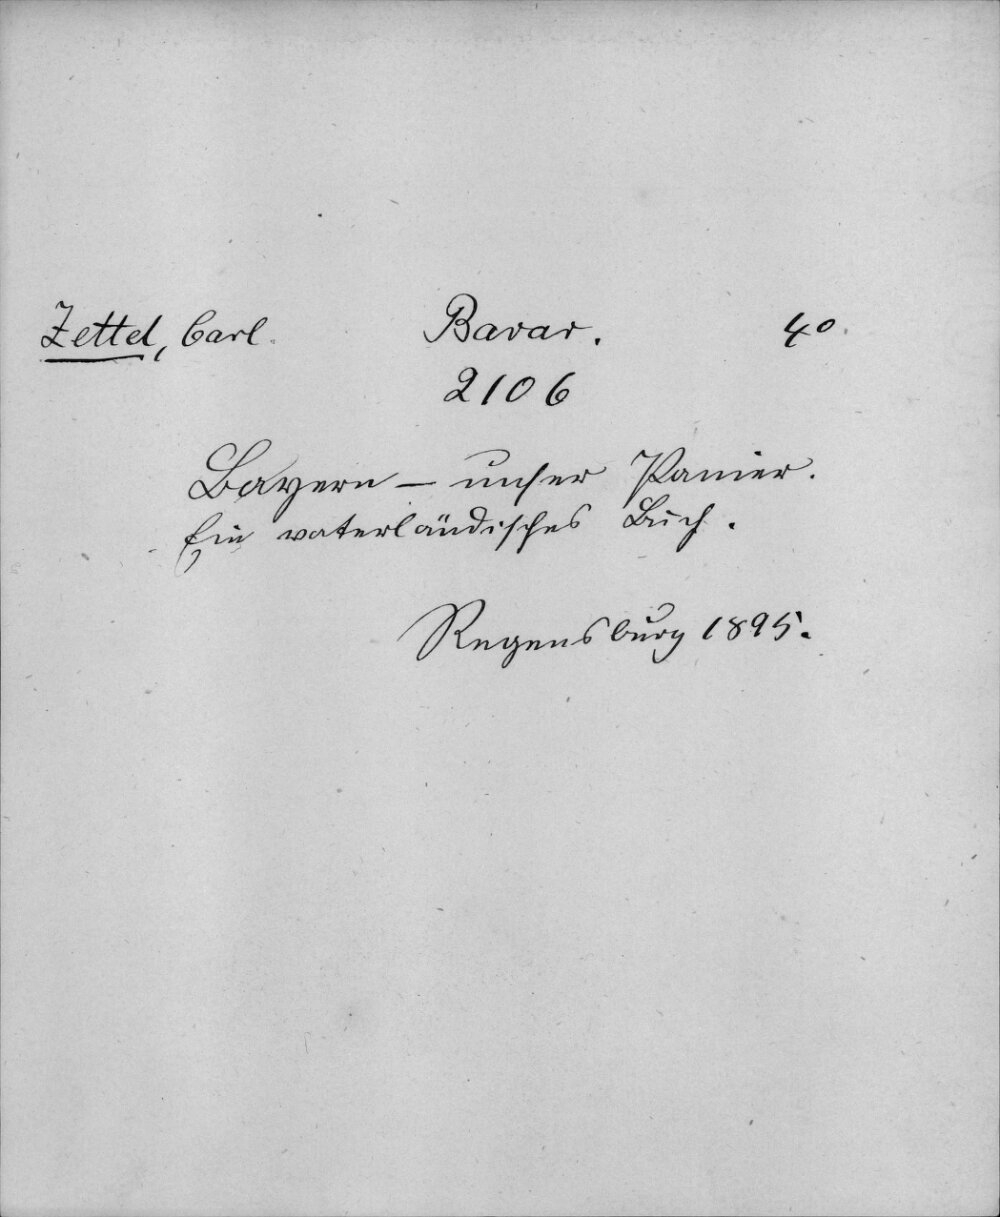 Zettel, Carl. Bavar. 4°.
2106
Bayern – unser Panier.
Ein vaterländisches Buch.
Regensburg 1895.